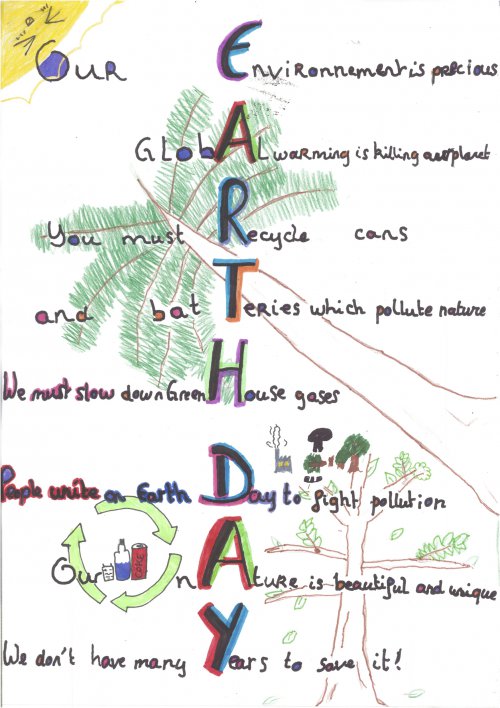 Our Environnement is precious
Global warming is killing our planet
You must Recycle cans
and batTeries which pollute nature
We must slow down Green House gases
People write on Earth Day to fight pollution
Our nAture is beautiful and unique
We don't have many Years to save it!
COKE